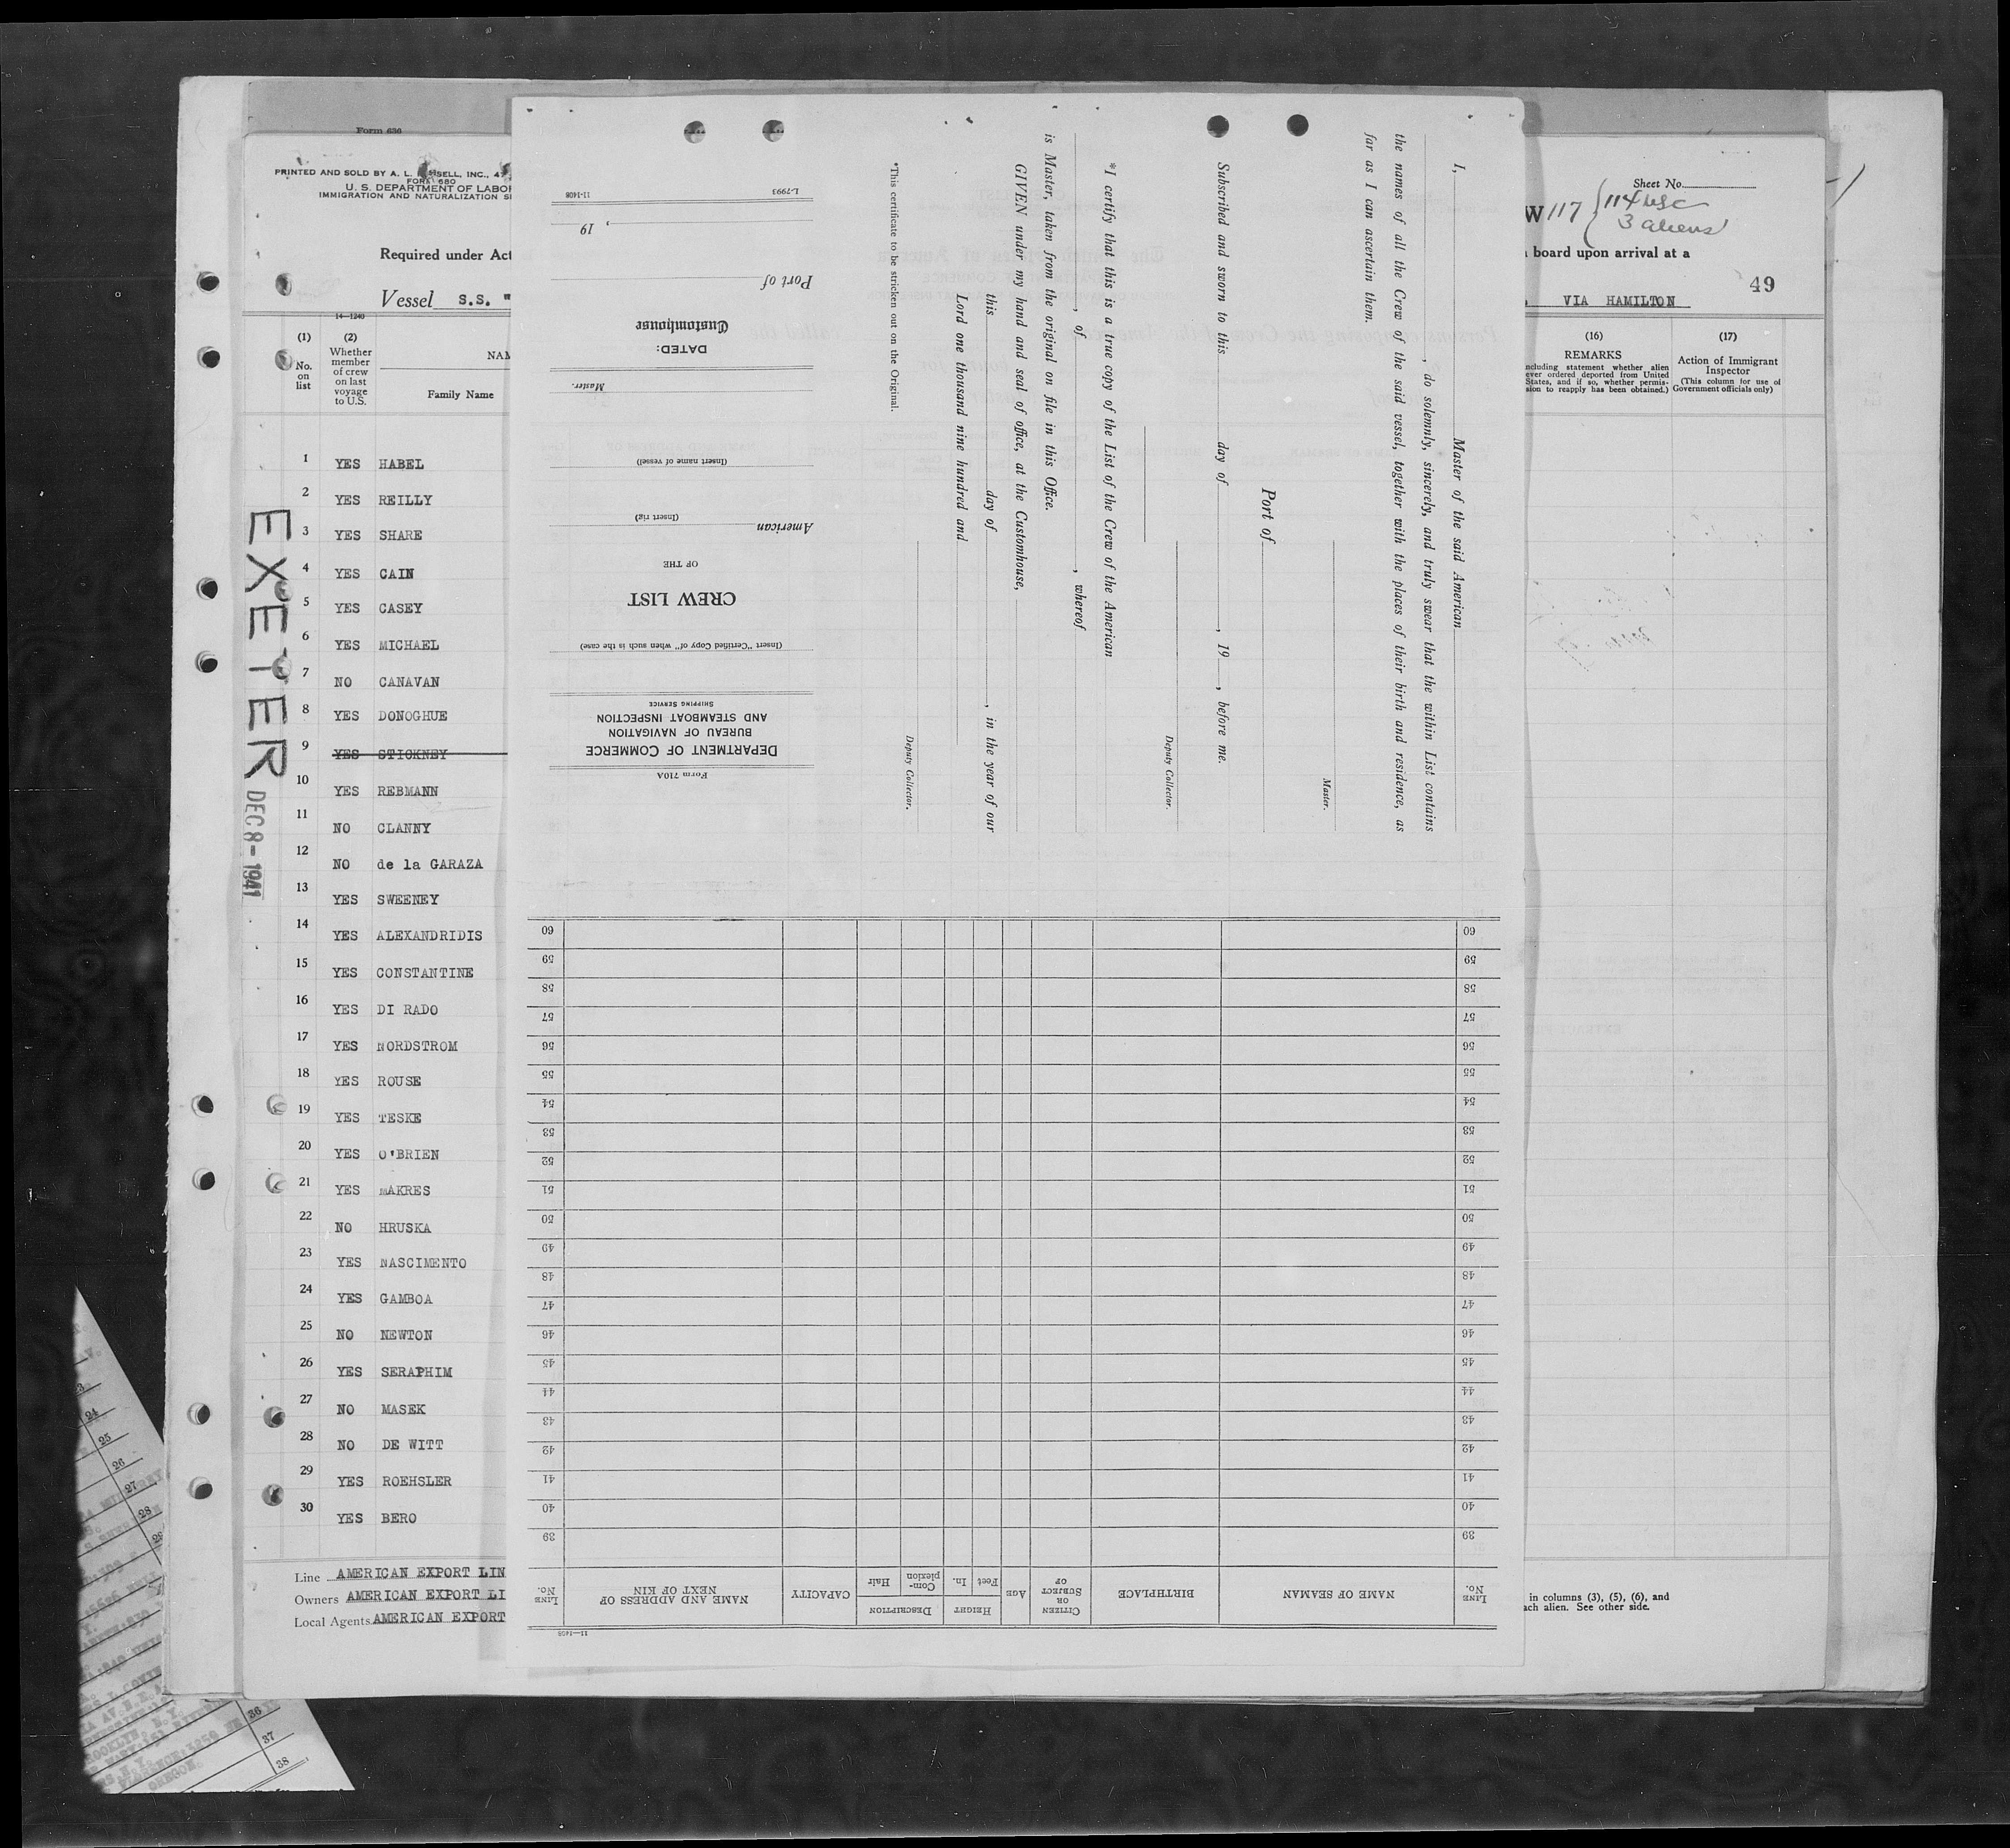 Form 636
PRINTED AND SOLD BY A. L.
FORM 680
U. S. DEPARTMENT OF LABOR
IMMIGRATION AND NATURALIZATION
Required under Act
Vessel S.S.
14-1240
(1)
No. on list
(2)
Whether member of crew on last voyage to U.S.
Family Name
1 YES HABEL
2 YES REILLY
3 YES SHARE
4 YES CAIN
5 YES CASEY
6 YES MICHAEL
7 NO CANAVAN
8 YES DONOGHUE
9 YES STICKNEY
10 YES REBMANN
11 NO CLANNY
12 NO de la GARAZA
13 YES SWEENEY
14 YES ALEXANDRIDIS
15 YES CONSTANTINE
16 YES DI RADO
17 YES NORDSTROM
18 YES ROUSE
19 YES TESKE
20 YES O'BRIEN
21 YES MAKRES
22 NO HRUSKA
23 YES NASCIMENTO
24 YES GAMBOA
25 NO NEWTON
26 YES SERAPHIM
27 NO MASEK
28 NO DE WITT
29 YES ROEHSLER
30 YES BERO
Line AMERICAN EXPORT LIN
Owners AMERICAN EXPORT LI
Local Agents AMERICAN EXPORT
EXETER
DEC 8 - 1941
I, Master of the said American
, do solemnly, sincerely, and truly swear that the within List contains
the names of all the Crew of the said vessel, together with the places of their birth and residence, as
far as I can ascertain them.
Master.
Port of
Subscribed and sworn to this day of , 19 , before me.
Deputy Collector.
*I certify that this is a true copy of the List of the Crew of the American
, of , whereof
is Master, taken from the original on file in this Office.
GIVEN under my hand and seal of office, at the Customhouse,
this day of , in the year of our
Lord one thousand nine hundred and
Deputy Collector.
*This certificate to be stricken out on the Original.
Form 710A
DEPARTMENT OF COMMERCE
BUREAU OF NAVIGATION
AND STEAMBOAT INSPECTION
SHIPPING SERVICE
(Insert "Certified Copy of" when such is the case)
CREW LIST
OF THE
American
(Insert rig)
(Insert name of vessel)
Master.
DATED:
Customhouse
Port of
, 19
L-7993
11-1408
11-1408
LINE No.
NAME OF SEAMAN
BIRTHPLACE
CITIZEN OR SUBJECT OF
AGE
HEIGHT
Feet
In.
DESCRIPTION
Com-plexion
Hair
CAPACITY
NAME AND ADDRESS OF NEXT OF KIN
LINE No.
39 39
40 40
41 41
42 42
43 43
44 44
45 45
46 46
47 47
48 48
49 49
50 50
51 51
52 52
53 53
54 54
55 55
56 56
57 57
58 58
59 59
60 60
Sheet No.
W 117 { 114 USC
3 aliens
board upon arrival at a
49
VIA HAMILTON
(16)
REMARKS
including statement whether alien
ever ordered deported from United
States, and if so, whether permis-
sion to reapply has been obtained.)
(17)
Action of Immigrant
Inspector
(This column for use of
Government officials only)
in columns (3), (5), (6), and
ach alien. See other side.
24
25
26
27
28
36
37
38
OREGON.